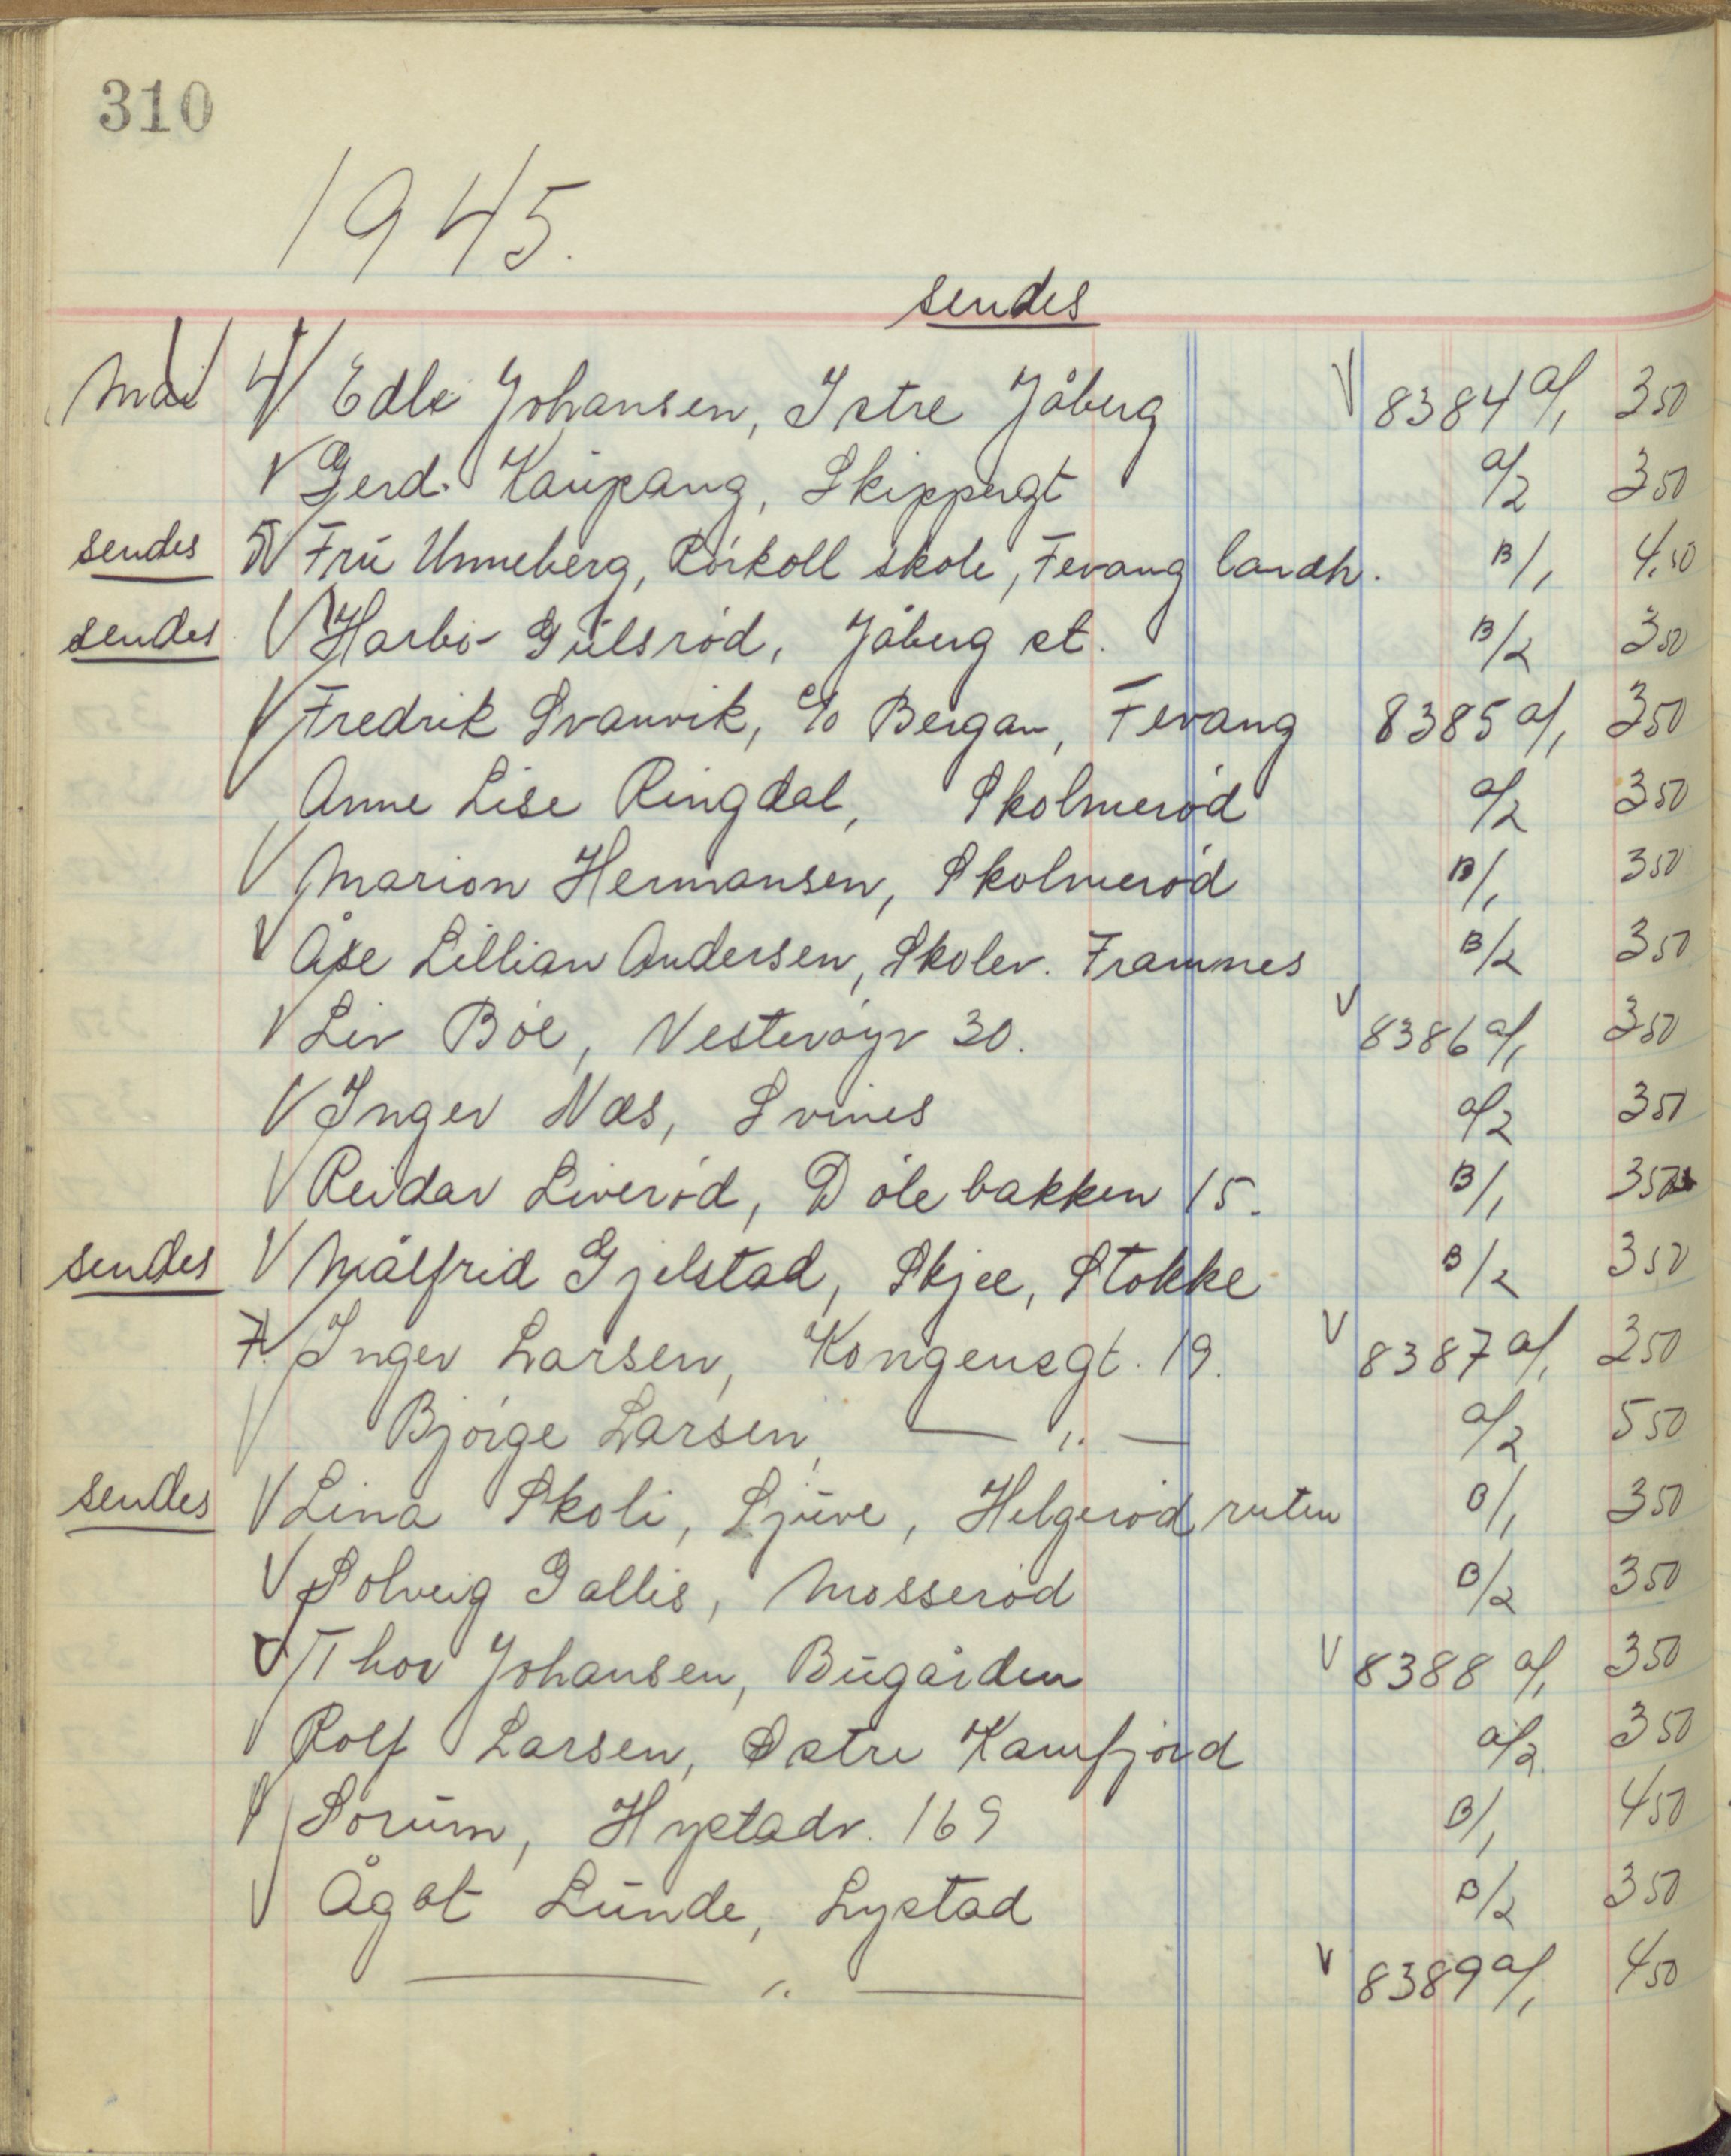 310
1945.
sendes
Mai 4/ Edle Johansen, Istre Jåberg V 8384 a/1 350
V Gerd Kaupang, Skippergt a/2 350
sendes 5 V Fru Unneberg, Rørkoll skole, Fevang landh. B/1 4,50
sendes V Harbo Gulsrød, Jåberg st. B/2 350
V Fredrik Svanvik, c/o Bergan, Fevang 8385 a/1 350
Anne Lise Ringdal, Skolmerød a/2 350
V Marion Hermansen, Skolmerød B/1 350
V Åse Lillian Andersen, Skolev. Framnes B/2 350
V Liv Bøe, Vesterøyv 30. V 8386 a/1 350
V Inger Næs, Svines a/2 350
V Reidar Liverød, Dølebakken 15. B/1 350
sendes V Målfrid Gjelstad, Skjee, Stokke B/2 350
7. Inger Larsen, Kongensgt. 19. V 8387 a/1 250
V Bjørge Larsen, — " — a/2 550
sendes V Lina Skoli, Sjuve, Helgerød ruten B/1 350
V Solveig Gallis, Mosserød B/2 350
V Thor Johansen, Bugården V 8388 a/1 350
V Rolf Larsen, Østre Kamfjord a/2 350
V Sørum, Hystadv. 169 B/1 450
V Ågot Lunde, Lystad B/2 350
— " — V 8389 a/1 450